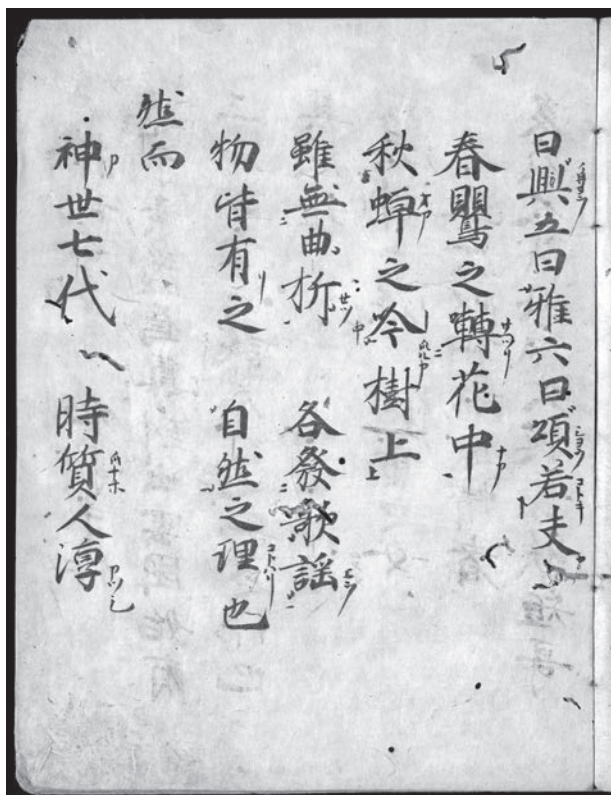 曰興五曰雅六曰頌若夫
春鸎之囀花中
秋蟬之吟樹上
雖無曲折 各發歌謡
物皆有之 自然之理也
然而
神世七代 時質人淳